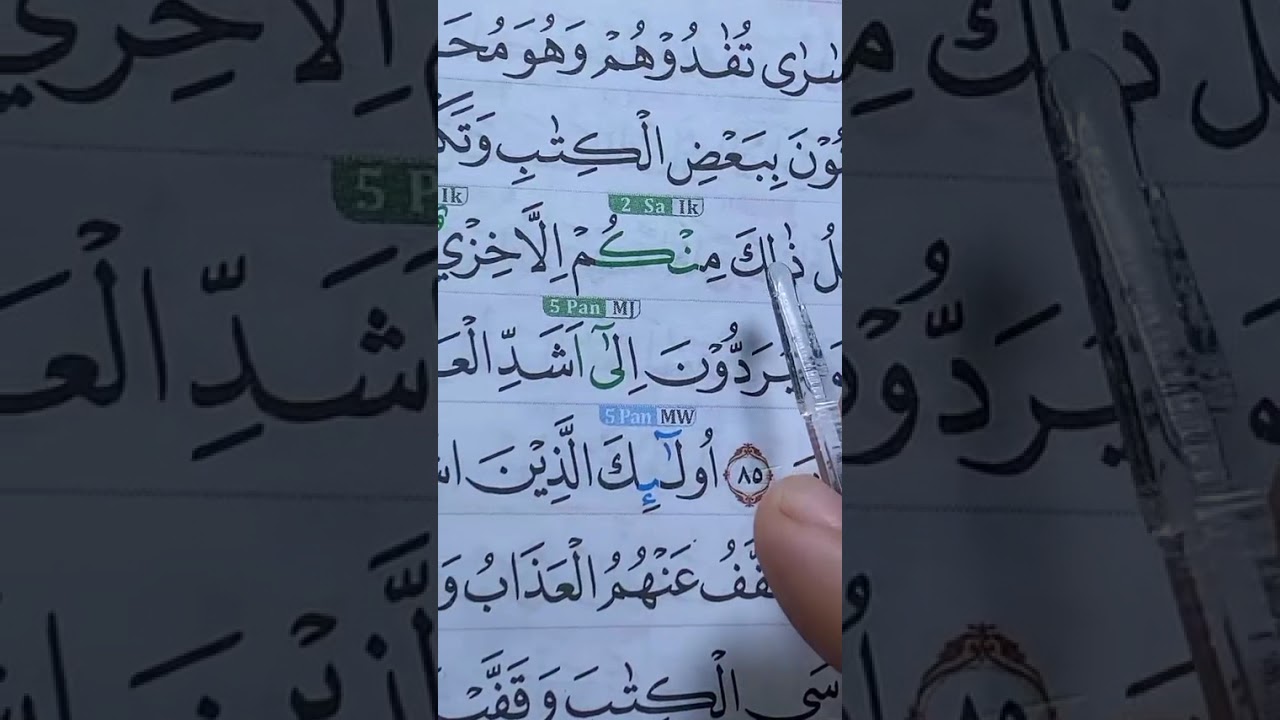 تُفٰدُوْهُمْ وَهُوَ
بِبَعْضِ الْكِتٰبِ
Ik 2 Sa Ik
ذٰلِكَ مِنْكُمْ اِلَّا خِزْيٌ
5 Pan MJ
يُرَدُّوْنَ اِلٰٓى اَشَدِّ
5 Pan MW
٨٥ اُولٰۤىِٕكَ الَّذِيْنَ
عَنْهُمُ الْعَذَابُ
الْكِتٰبَ